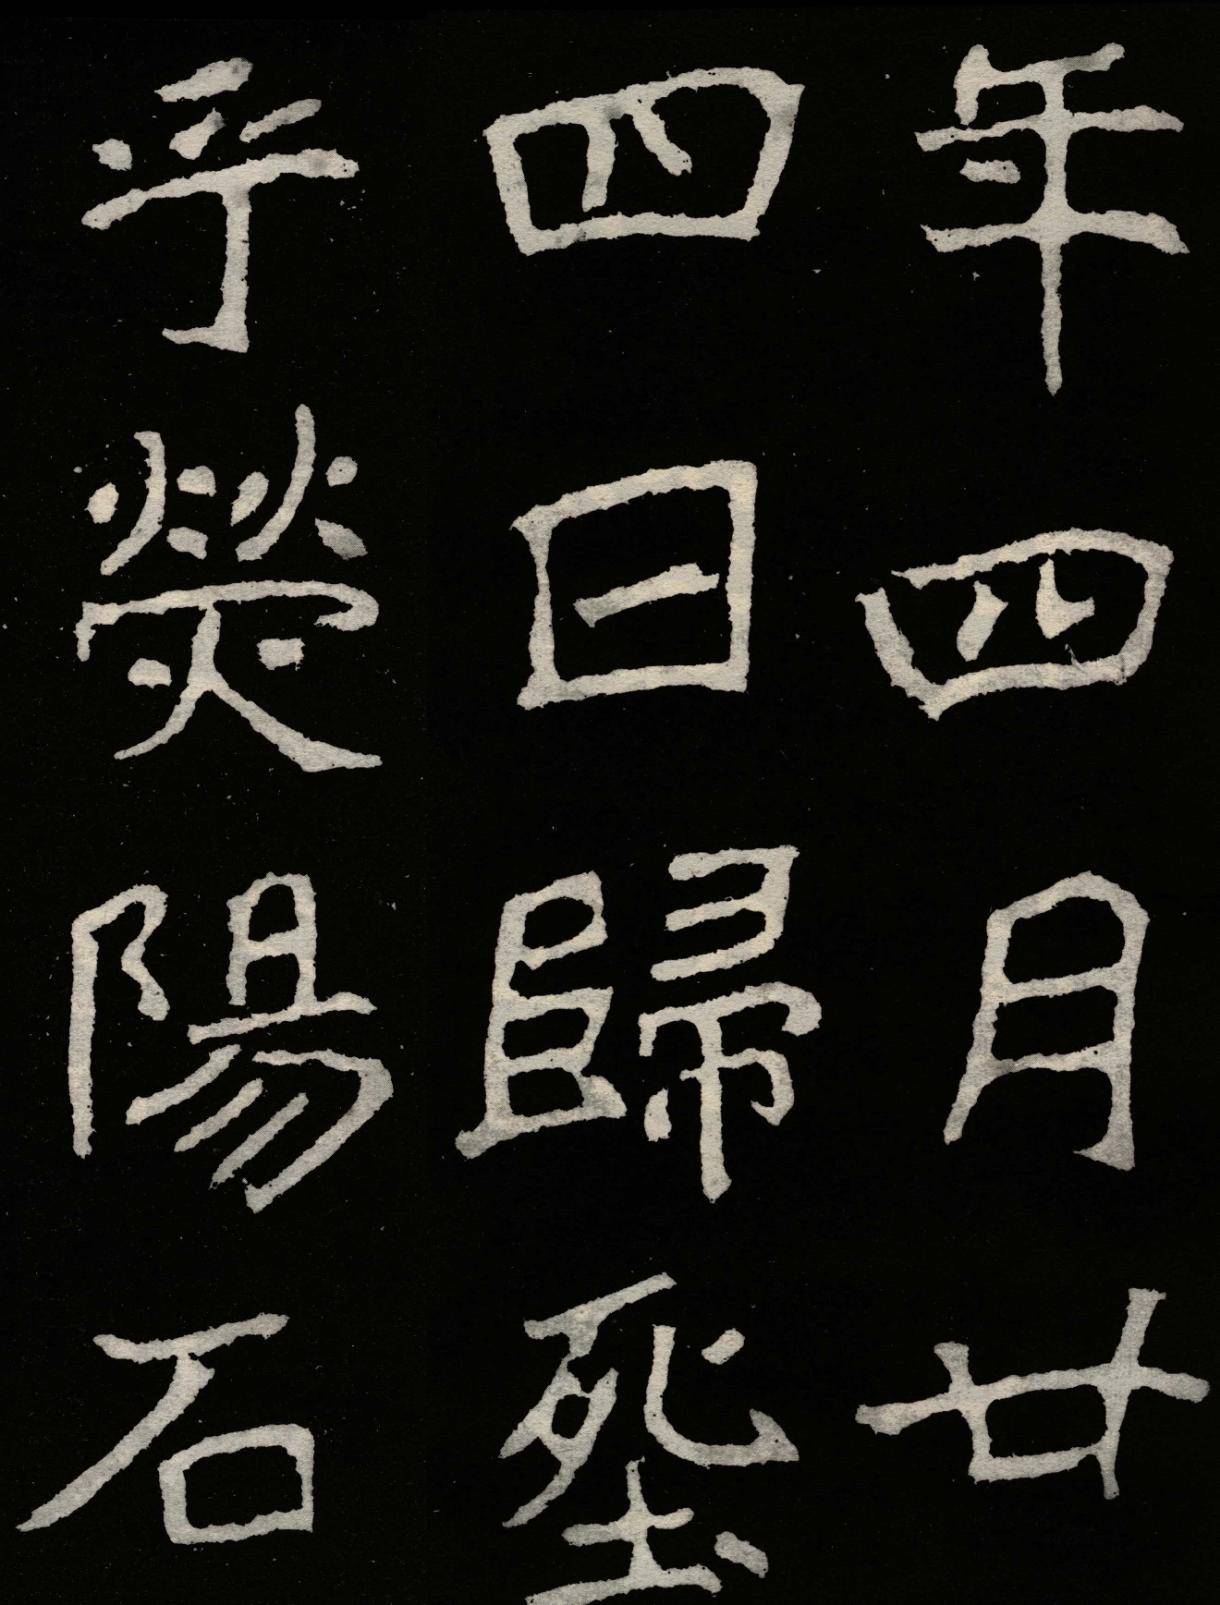 年四月廿
四日歸葬
乎熒陽石